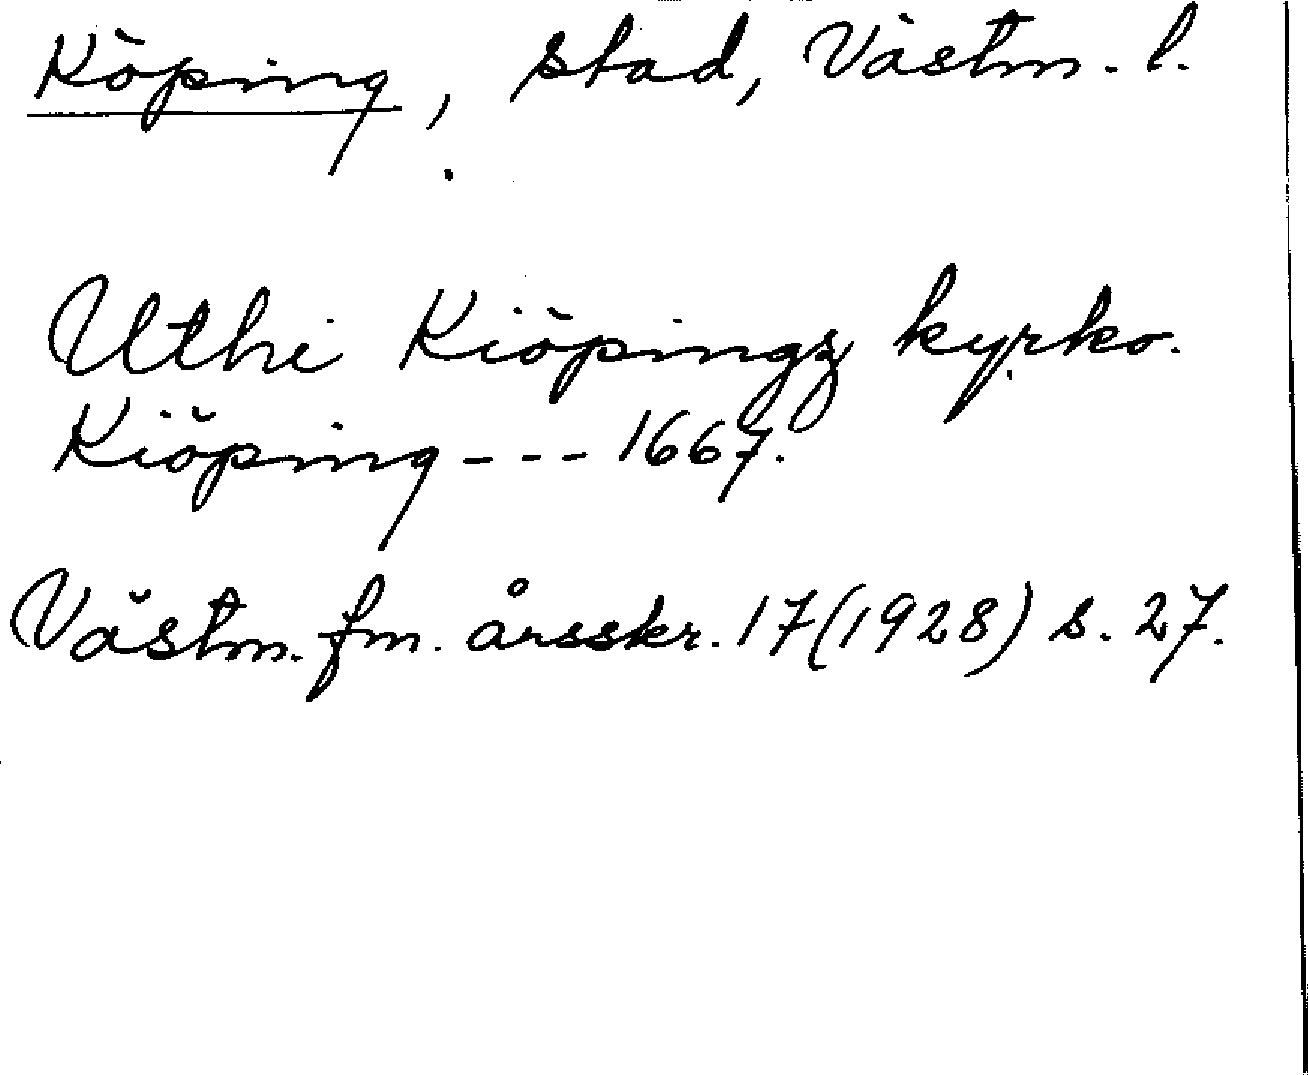 Köping, stad, Västm. l.
Uthi Kiöpingz kyrko.
Kiöping --- 1667.
Västm. fm. årsskr. 17 (1928) s. 27.